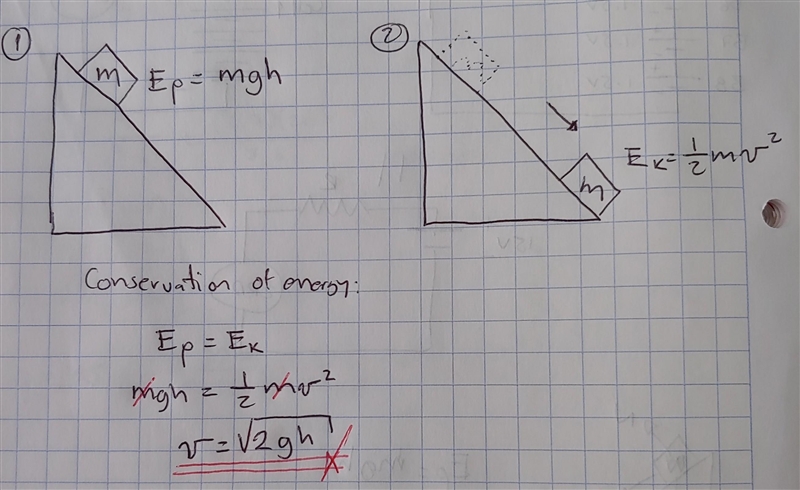 ①
m
Ep = mgh
②
m
Eκ = 1/2 mv²
Conservation of energy:
Ep = Eκ
mgh = 1/2 mv²
v = √2gh